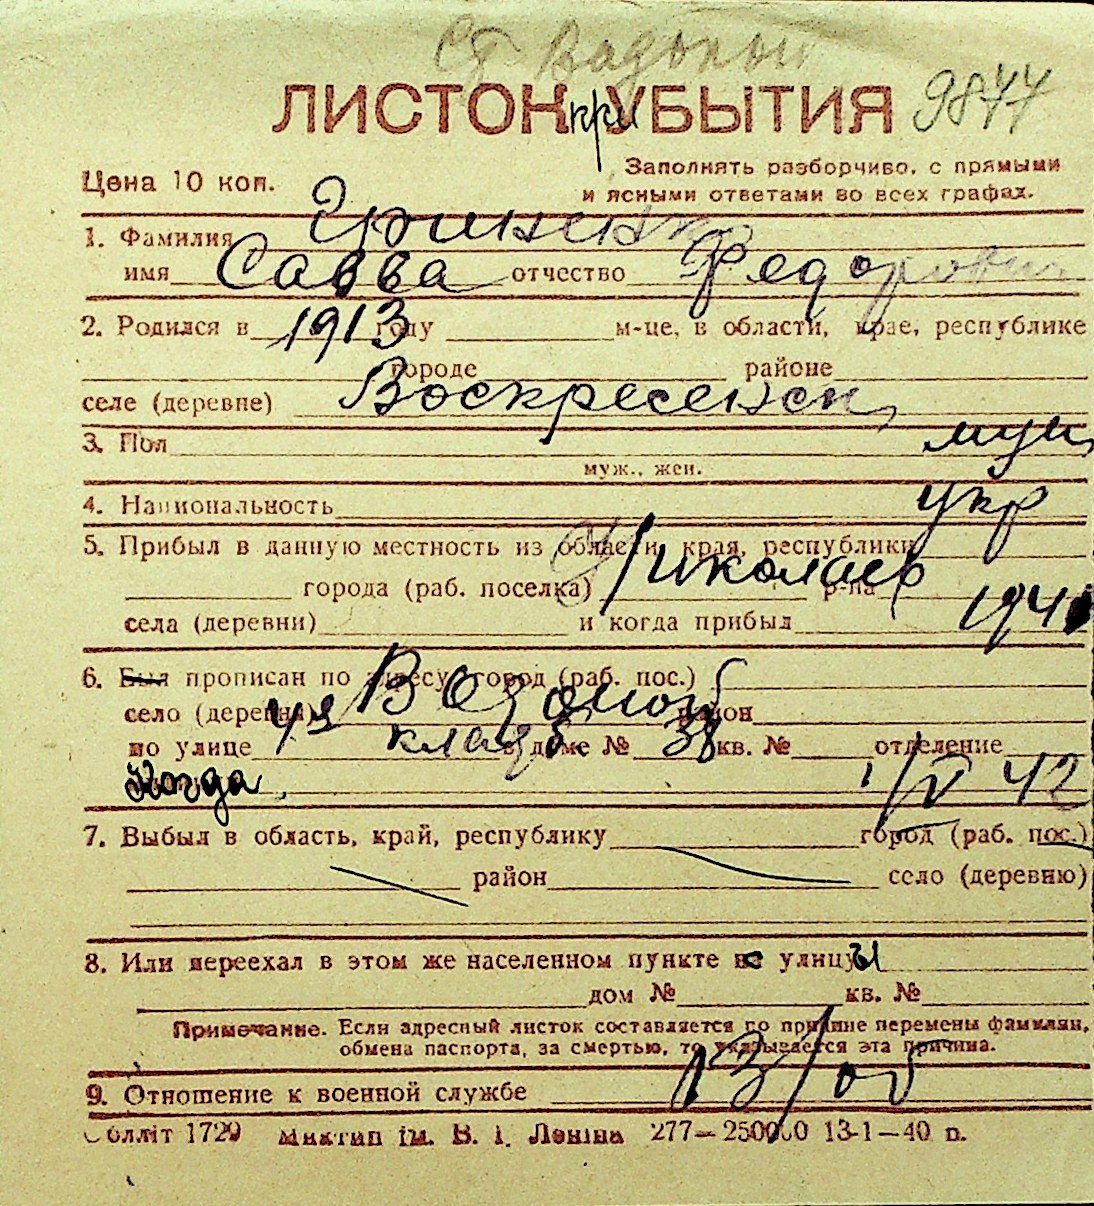 Ст Водопой
ЛИСТОК при УБЫТИЯ 9877
Цена 10 коп. Заполнять разборчиво, с прямыми
и ясными ответами во всех графах.
1. Фамилия Гриненк
имя Савва отчество Федорович
2. Родился в 1913 году м-це, в области, крае, республике
городе районе
селе (деревне) Воскресенск
3. Пол муж
муж., жен.
4. Национальность укр
5. Прибыл в данную местность из области, края, республики
города (раб. поселка) Николаев р-на
села (деревни) и когда прибыл 1941
6. Был прописан по адресу: город (раб. пос.)
село (деревня) Водопой район
по улице 4я в доме № 38 кв. № отделение
Когда 1/IV 42
7. Выбыл в область, край, республику город (раб. пос.)
район село (деревню)
8. Или переехал в этом же населенном пункте с улицы
дом № кв. №
Примечание. Если адресный листок составляется по причине перемены фамилии,
обмена паспорта, за смертью, то указывается эта причина.
9. Отношение к военной службе в/об
Обллiт 1729 Миктип iм. В. I. Ленiна 277—250000 13-1—40 п.